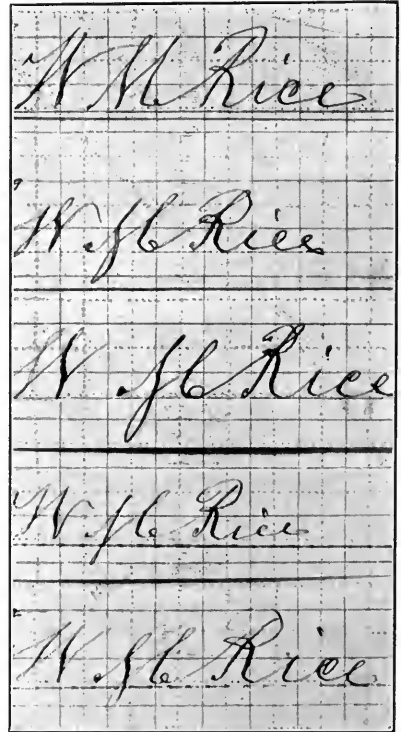 W M Rice
W M Rice
W M Rice
W M Rice
W M Rice